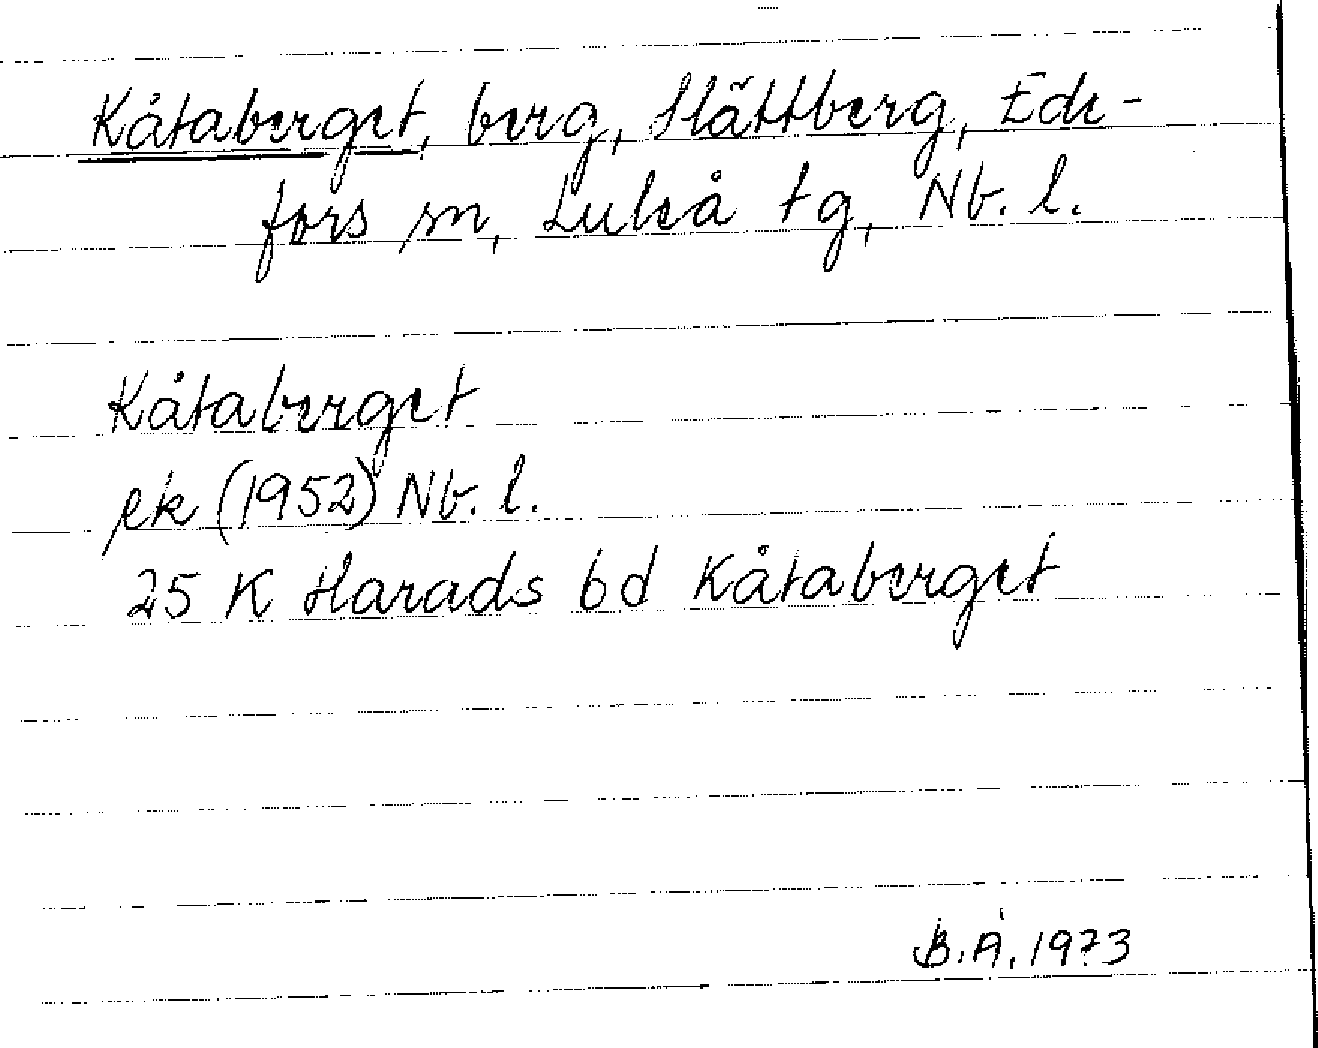 Kåtaberget, berg, Slättberg, Ede-
fors sn, Luleå tg, Nb. l.
Kåtaberget
ek (1952) Nb. l.
25 K Harads bd Kåtaberget
B.Å. 1973